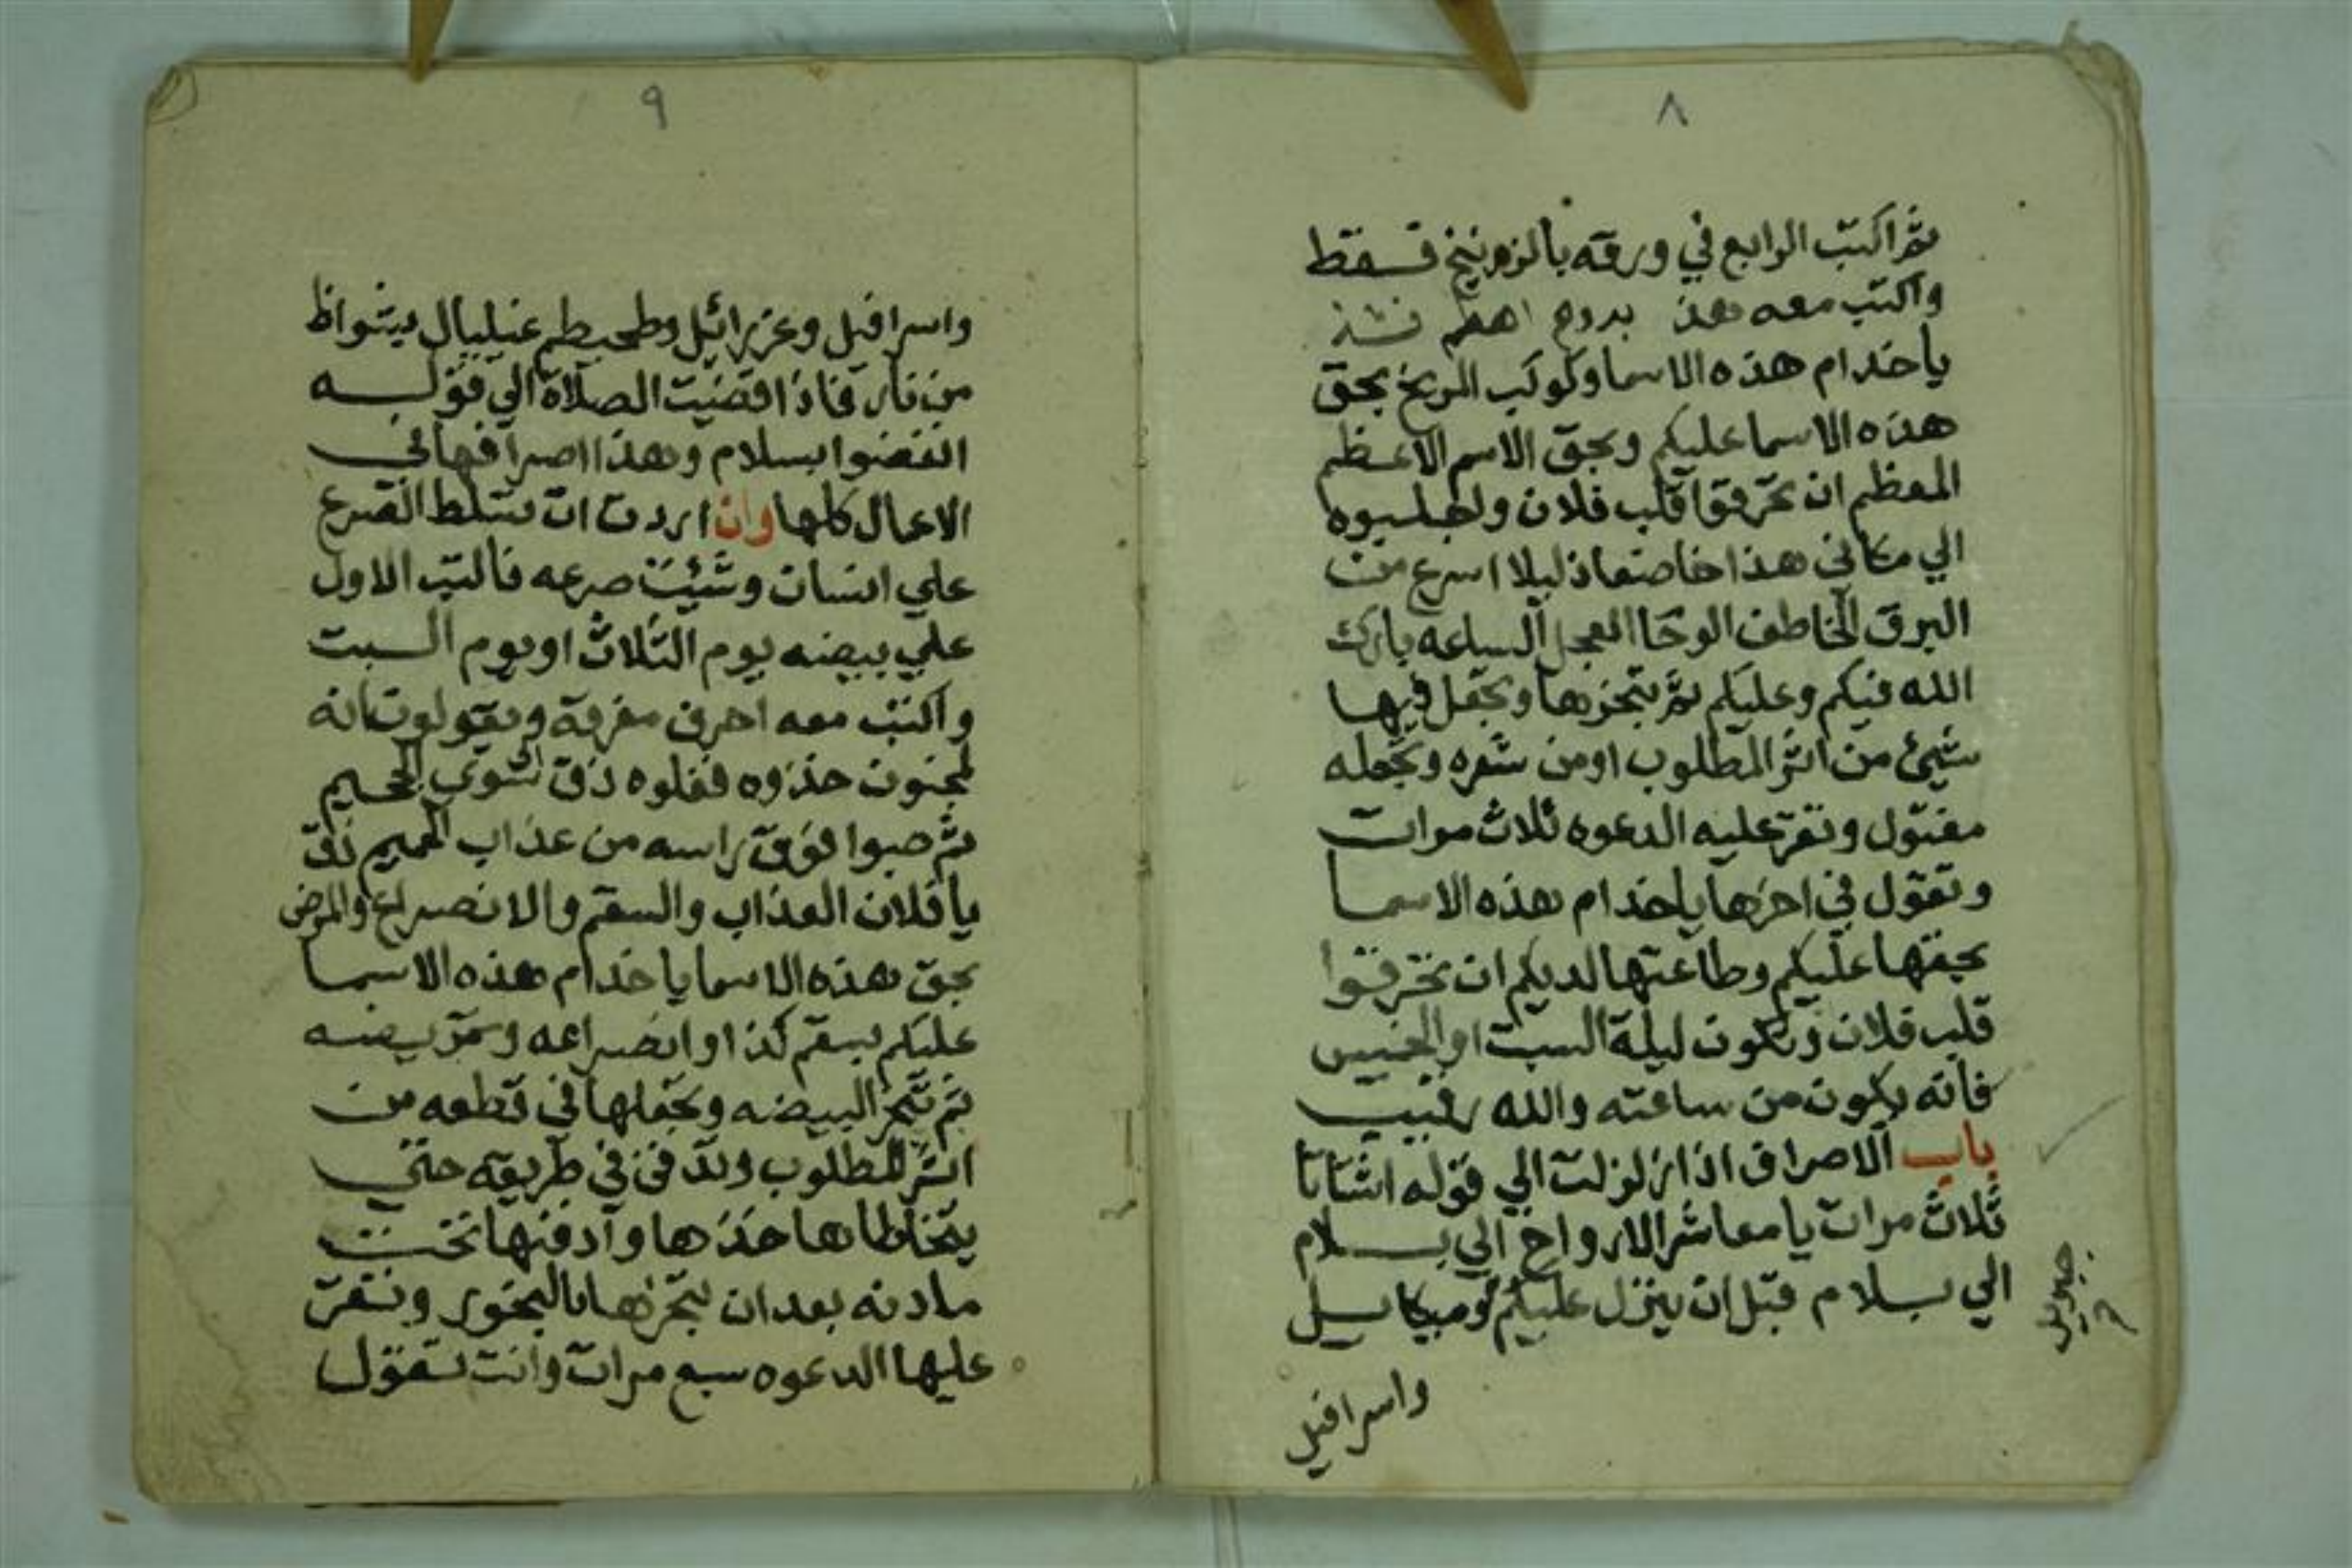 ٨
ثم اكتب الرابع في ورقه بالزرنيخ فسقط
واكتب معه هذ بدوح اهطم فشذ
ياخدام هذه الاسما وكوكب المريخ بحق
هذه الاسما عليكم وبحق الاسم الاعظم
المعظم ان تحرقوا قلب فلان ولجلبوه
الي مكاني هذا خاضعا ذليلا اسرع من
البرق الخاطف الوحا العجل الساعه بارك
الله فيكم وعليكم ثم تبخرها وتجعل فيها
شيئ من اثر المطلوب او من شعره وتجعله
مفتول وتقر عليه الدعوه ثلاث مرات
وتقول في اخرها ياخدام هذه الاسما
بحقها عليكم وطاعتها لديكم ان تحرقوا
قلب فلان وتكون ليلة السبت او الخميس
فانه يكون من ساعته والله رقيب
باب الاصراف اذا زلزلت الي قوله اشتاتا
ثلاث مرات يا معاشر الارواح الي بسلام
الي بسلام قبل ان ينزل عليكم وميكاييل
جبريل
واسرافيل
٩
واسرافيل وعزرائيل وطحيطم عنليال بشواظ
من نار فاذا قضيت الصلاة الي قوله
انفضوا بسلام وهذا اصرافها في
الاعمال كلها وان اردت ان تسلط الصرع
علي انسان وشئت صرعه فاكتب الاول
علي بيضه يوم الثلاث او يوم السبت
واكتب معه احرف مفرقة ويقولون انه
لمجنون خذوه فغلوه ذق الجحيم
ثم صبوا فوق راسه من عذاب الحميم ذق
يا فلان العذاب والسقم والانصراع والمرض
بحق هذه الاسما ياخدام هذه الاسما
عليكم بسقم كذا او انصراعه وتمريضه
ثم تبخر البيضه وتجعلها في قطعه من
اثر المطلوب وتدفن في طريقه حتي
يتخطاها خذها وادفنها تحت
مادنه بعد ان تبخرها بالبخور وتقر
عليها الدعوه سبع مرات وانت تقول